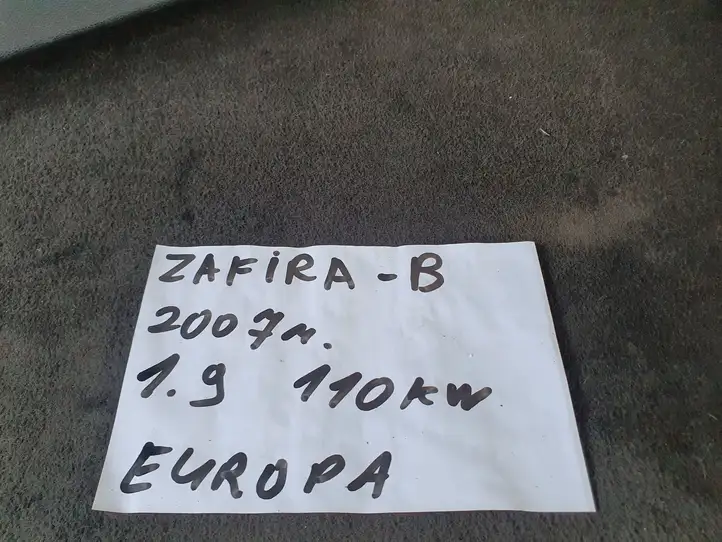 ZAFİRA - B
2007 м.
1.9 110 KW
EUROPA